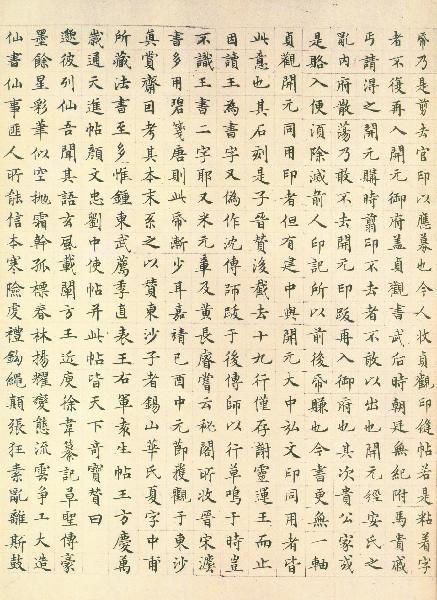 帋乃是剪去官印以應募也今人收貞觀印縫帖若是粘着字
者不復再入開元御府蓋貞觀書武后時朝廷無紀附馬貴戚
丐請得之開元購時剪印不去者不敢以出也開元經安氏之
亂內府散蕩乃敢不去開元印跋再入御府也其次貴公家或
是賂入便須除滅前人印記所以前後帋賺也今書更無一軸
貞觀開元同用印者但有建中與開元大中弘文印同用者皆
此意也其石刻是子晉贊後截去十九行僅存謝靈運王而止
因讀王為書字又偽作沈傅師跋于後傅師以行草鳴于時豈
不識王書二字耶又米元章及黃長睿嘗云秘閣所收晉宋濮
書多用碧箋唐則此帋漸少耳嘉靖己酉中元節獲觀于東沙
真賞齋回考其本末系之以贊東沙子者錫山華氏夏字中甫
所藏法書至多惟鍾東武薦季直表王右軍袁生帖王方慶萬
歲通天進帖顏文忠劉中使帖并此帖皆天下奇寶贊曰
邈彼列仙吾聞其語玄風載闡方王近庾徐韋纂記草聖傳豪
墨餘星彩華似空拋霜幹孤標春林揚耀變態流雲爭工大造
仙書仙事匪人所能信本寒險虔禮繩顛張狂素亂離斯鼓